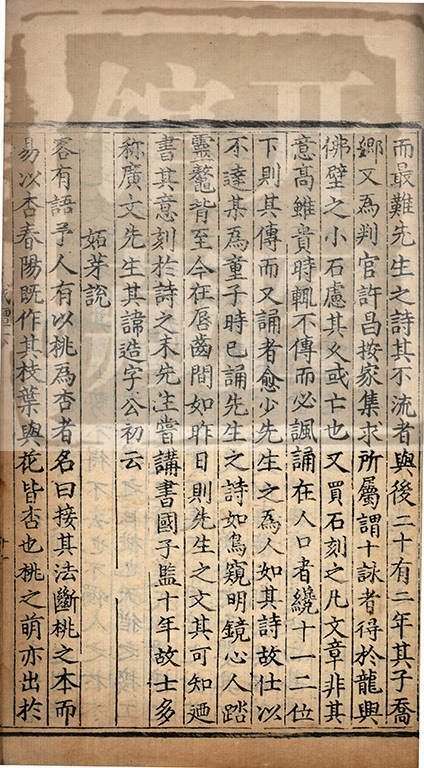 而最難先生之詩其不流者與後二十有二年其子喬
鄉又為判官許昌按家集求所屬謂十詠者得於龍興
佛壁之小石慮其久或亡也又買石刻之凡文章非其
意高雖貴時輒不傳而必諷誦在人口者纔十一二位
下則其傳而又誦者愈少先生之為人如其詩故仕以
不達某為童子時已誦先生之詩如烏窺明鏡心人踏
靈鼇背至今在唇齒間如昨日則先生之文其可知迺
書其意刻於詩之末先生嘗講書國子監十年故士多
称廣文先生其諱造字公初云
妬芽說
客有語予人有以桃為杏者名曰接其法斷桃之本而
易以杏春陽既作其枝葉與花皆杏也桃之萌亦出於